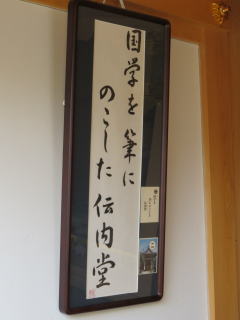 国学を筆に
のこした伝内堂